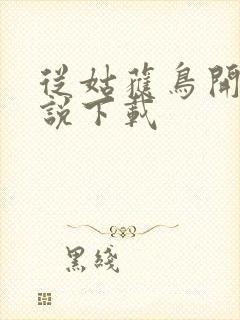 從姑獲鳥開
說下載
黑綫